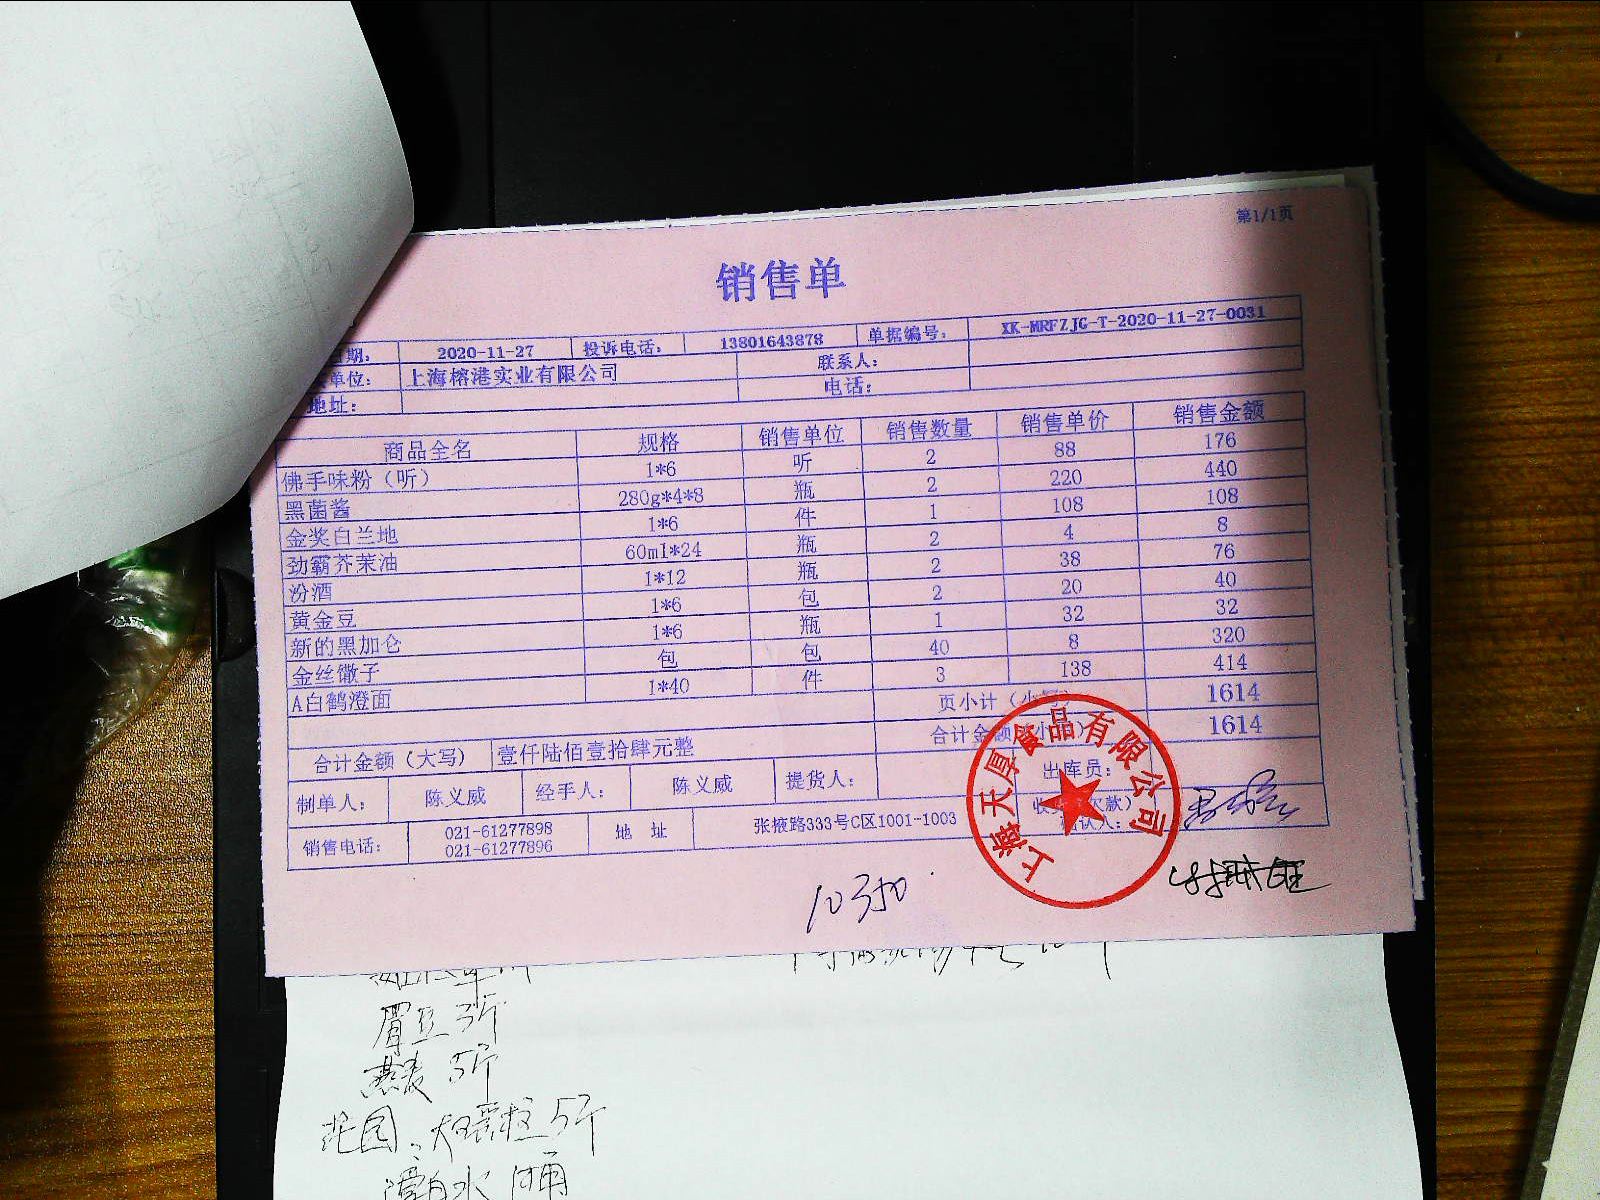 第1/1页
销售单
日期: 2020-11-27 投诉电话: 13801643878 单据编号: XK-MRFZJG-T-2020-11-27-0031
单位: 上海榕港实业有限公司 联系人:
地址: 电话:
商品全名 规格 销售单位 销售数量 销售单价 销售金额
佛手味粉（听） 1*6 听 2 88 176
黑菌酱 280g*4*8 瓶 2 220 440
金奖白兰地 1*6 件 1 108 108
劲霸芥茉油 60ml*24 瓶 2 4 8
汾酒 1*12 瓶 2 38 76
黄金豆 1*6 包 2 20 40
新的黑加仑 1*6 瓶 1 32 32
金丝馓子 包 包 40 8 320
A白鹤澄面 1*40 件 3 138 414
页小计（小写） 1614
合计金额（小写） 1614
合计金额（大写） 壹仟陆佰壹拾肆元整
制单人: 陈义威 经手人: 陈义威 提货人: 出库员:
销售电话: 021-61277898 地 址 张掖路333号C区1001-1003 收货（欠款）
021-61277896 确认人:
上海天厚食品有限公司
眉豆3斤
燕麦 5斤